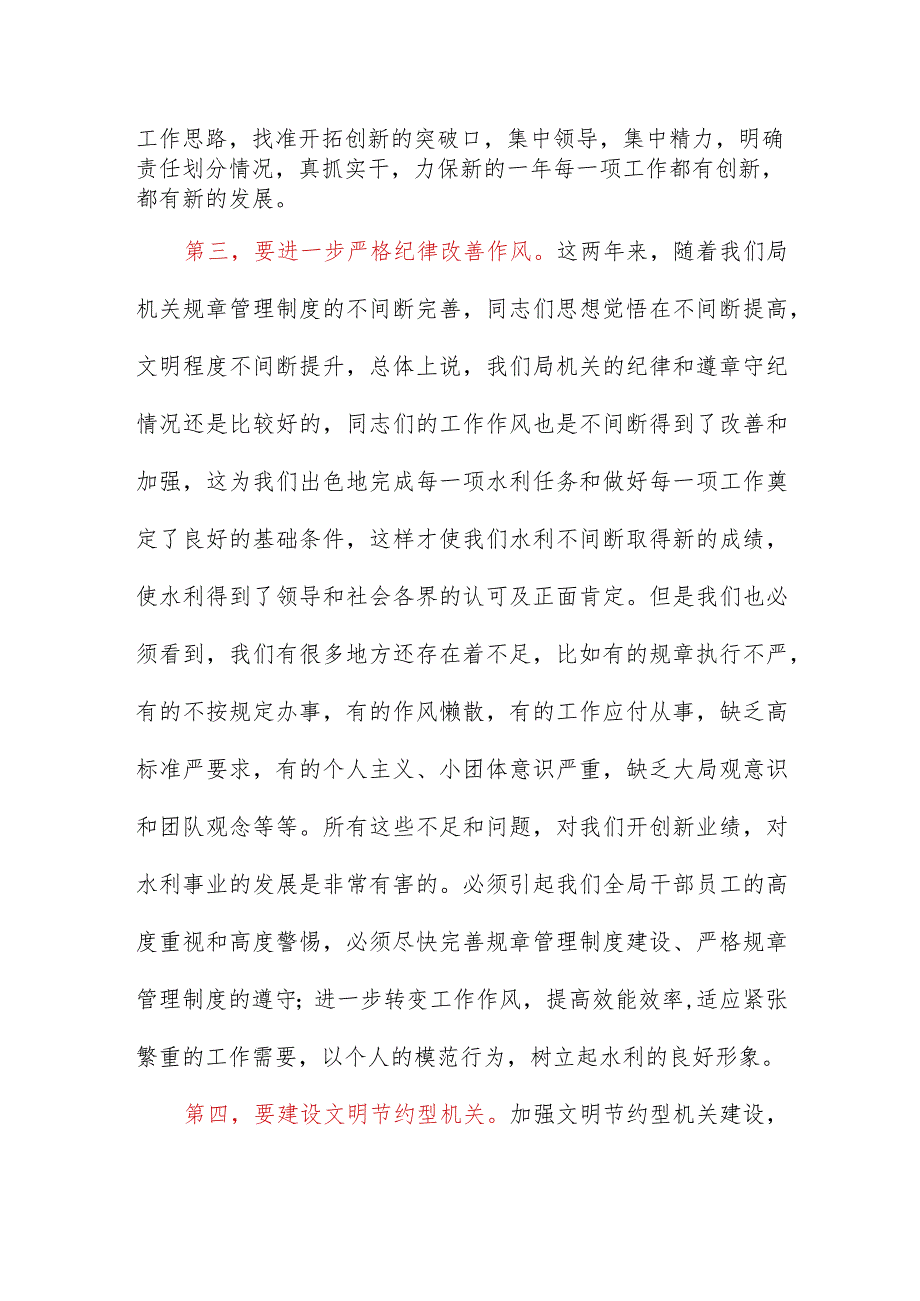 工作思路，找准开拓创新的突破口，集中领导，集中精力，明确
责任划分情况，真抓实干，力保新的一年每一项工作都有创新，
都有新的发展。
第三，要进一步严格纪律改善作风。这两年来，随着我们局
机关规章管理制度的不间断完善，同志们思想觉悟在不间断提高，
文明程度不间断提升，总体上说，我们局机关的纪律和遵章守纪
情况还是比较好的，同志们的工作作风也是不间断得到了改善和
加强，这为我们出色地完成每一项水利任务和做好每一项工作奠
定了良好的基础条件，这样才使我们水利不间断取得新的成绩，
使水利得到了领导和社会各界的认可及正面肯定。但是我们也必
须看到，我们有很多地方还存在着不足，比如有的规章执行不严，
有的不按规定办事，有的作风懒散，有的工作应付从事，缺乏高
标准严要求，有的个人主义、小团体意识严重，缺乏大局观意识
和团队观念等等。所有这些不足和问题，对我们开创新业绩，对
水利事业的发展是非常有害的。必须引起我们全局干部员工的高
度重视和高度警惕，必须尽快完善规章管理制度建设、严格规章
管理制度的遵守；进一步转变工作作风，提高效能效率,适应紧张
繁重的工作需要，以个人的模范行为，树立起水利的良好形象。
第四，要建设文明节约型机关。加强文明节约型机关建设，